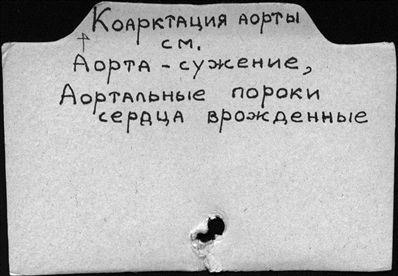 Коарктация аорты
см.
Аорта - сужение,
Аортальные пороки
сердца врожденные